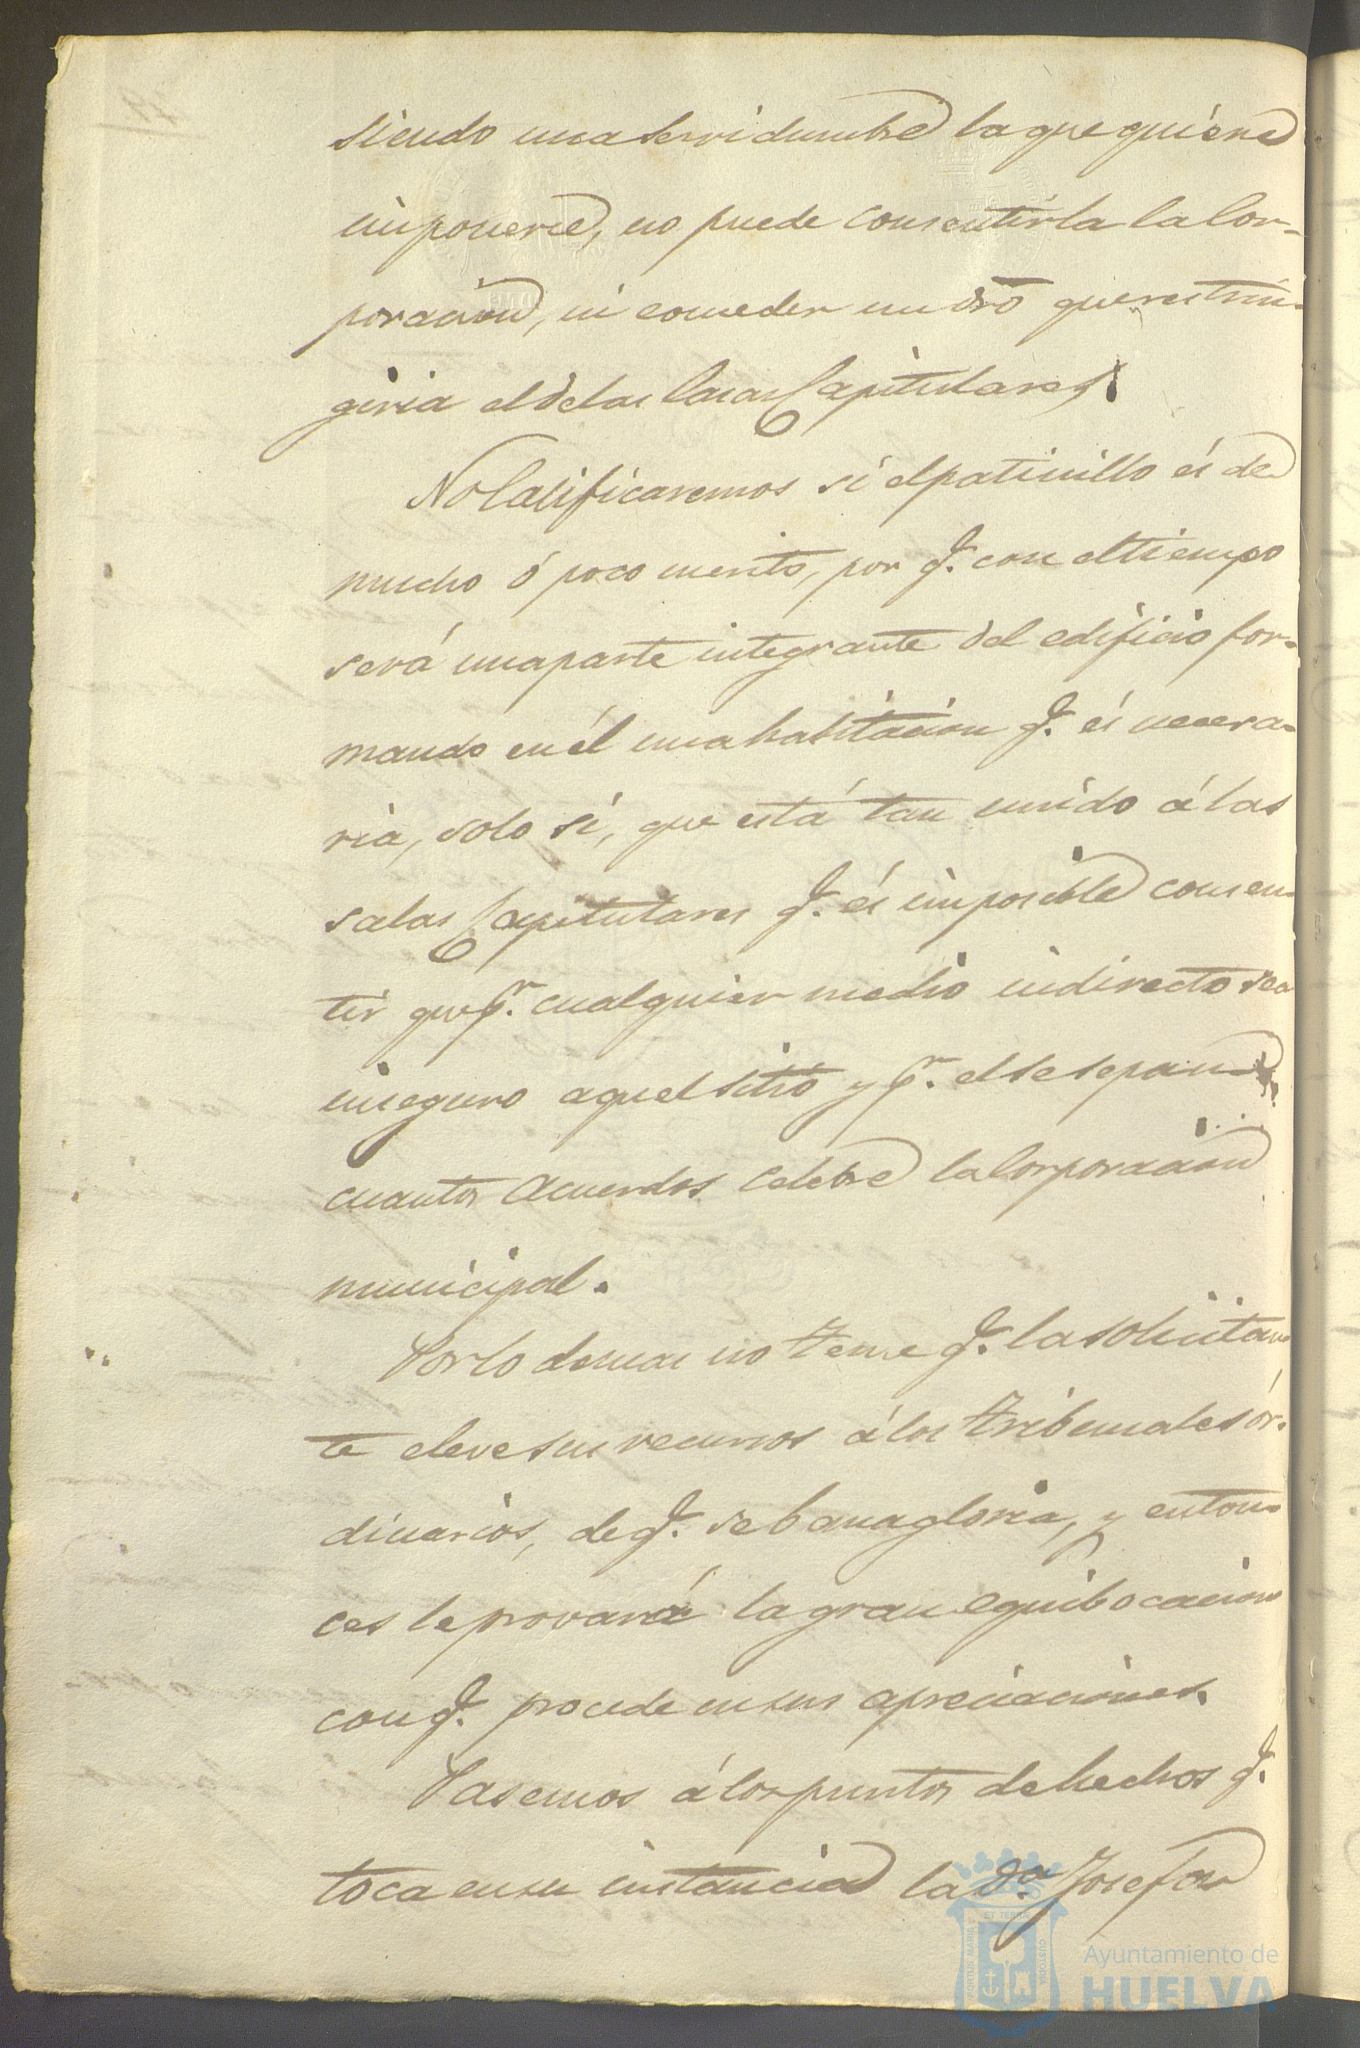 siendo una servidumbre la que quiere
imponerse, no puede consentirla la Cor-
poracion, ni conceder un dro que restrin-
giria el de las Casas Capitulares.
No Calificaremos si el patinillo és de
mucho ó poco merito, por q. con el tiempo
será una parte integrante del edificio for-
mando en él una habitacion q. és necesa-
ria, solo sí, que está tan unido á las
salas Capitulares q. és imposible consen-
tir que pr. cualquier medio indirecto sea
inseguro aquel sitio y pr. el se sepan
cuantos Acuerdos celebre la Corporacion
municipal.
Por lo demas no teme q. la solicitan-
te eleve sus recursos á los tribunales ór-
dinarios, de q. se banagloria, y enton-
ces le provará la gran equibocacion
con q. procede en sus apreciaciones.
Pasemos á los puntos de hechos q.
toca en su instancia la Da. Josefa
Ayuntamiento de
HUELVA
PORTUS MARIS
ET TERRÆ
CUSTODIA